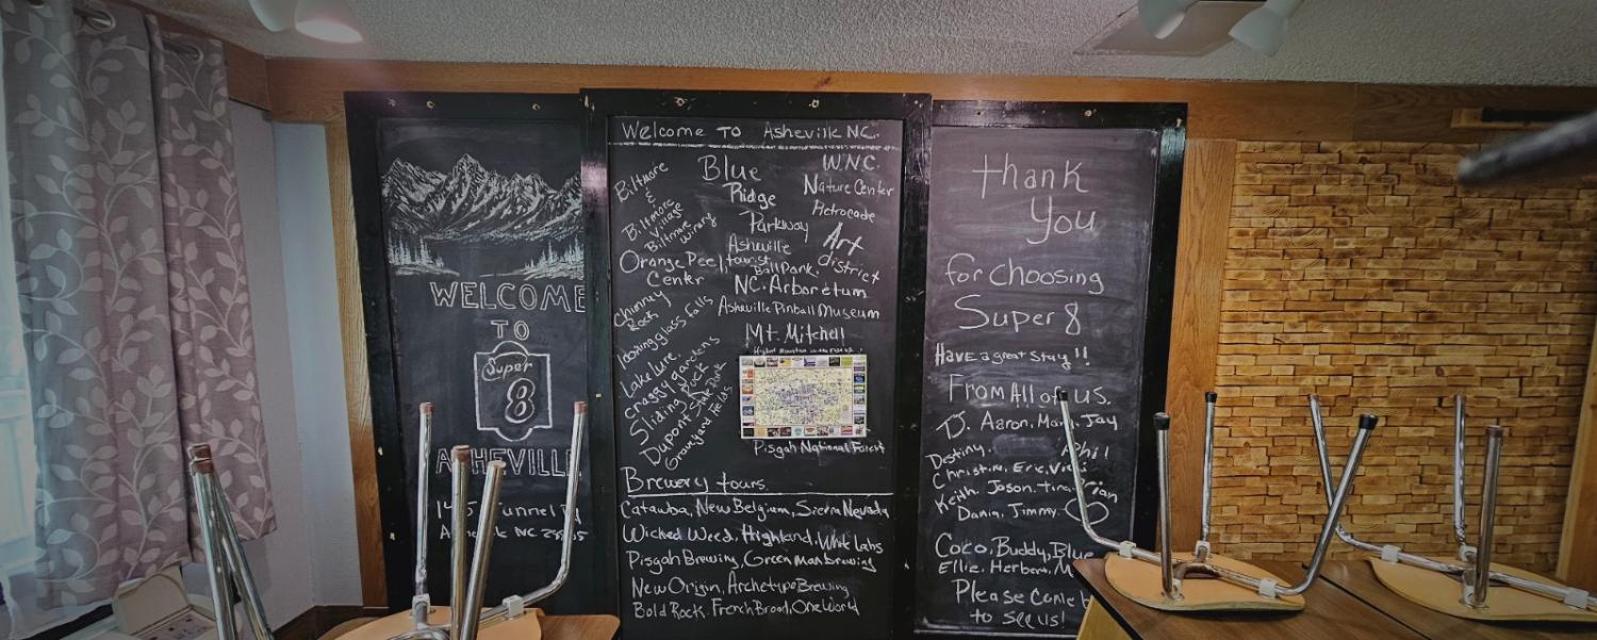 WELCOME
TO
Super
8
Tunnel
NC
Welcome TO Asheville NC.
Biltmore
&
Biltmore
Village
Biltmore
winery
Orange Peel
Center
Chimney
Rock
looking glass falls
Lake lure.
craggy gardens
Sliding Rock
Dupont State Park
Graveyard fields
Blue
Ridge
Parkway
Asheville
tourist
Ball Park.
NC. Arboretum
Asheville Pinball Museum
Mt. Mitchell
W.N.C.
Nature Center
Retrocade
Art
district
Pisgah National Forest
Brewery tours.
Catawba, New Belgium, Sierra Nevada
Wicked Weed, Highland, White labs
Pisgah Brewing, Green man brewing
New Origin, Archetype Brewing
Bold Rock, French Broad, One World
thank
You
for choosing
Super 8
Have a great stay!!
From All of us.
D. Aaron, Mary, Jay
Destiny.
Christine, Eric,
Keith. Jason. tina,
Dania, Jimmy.
Coco, Buddy, Blue
Ellie, Herbert,
Please come
to see us!